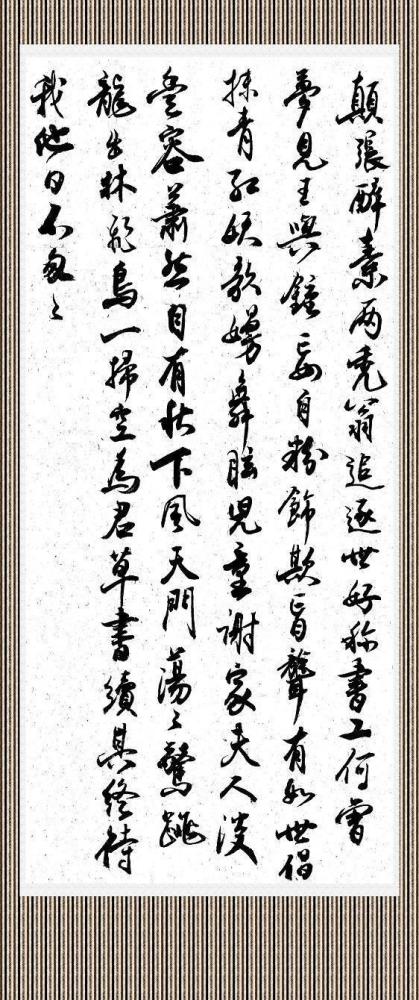 顛張醉素兩禿翁追逐世好称書工何曾
夢見王與鍾妄自粉飾欺盲聾有如世倡
抹青紅妖歌嫚舞眩兒童謝家夫人淡
豐容蕭然自有林下風天門蕩々驚跳
龍出林飛鳥一掃空為君草書續其終待
我他日不匆々